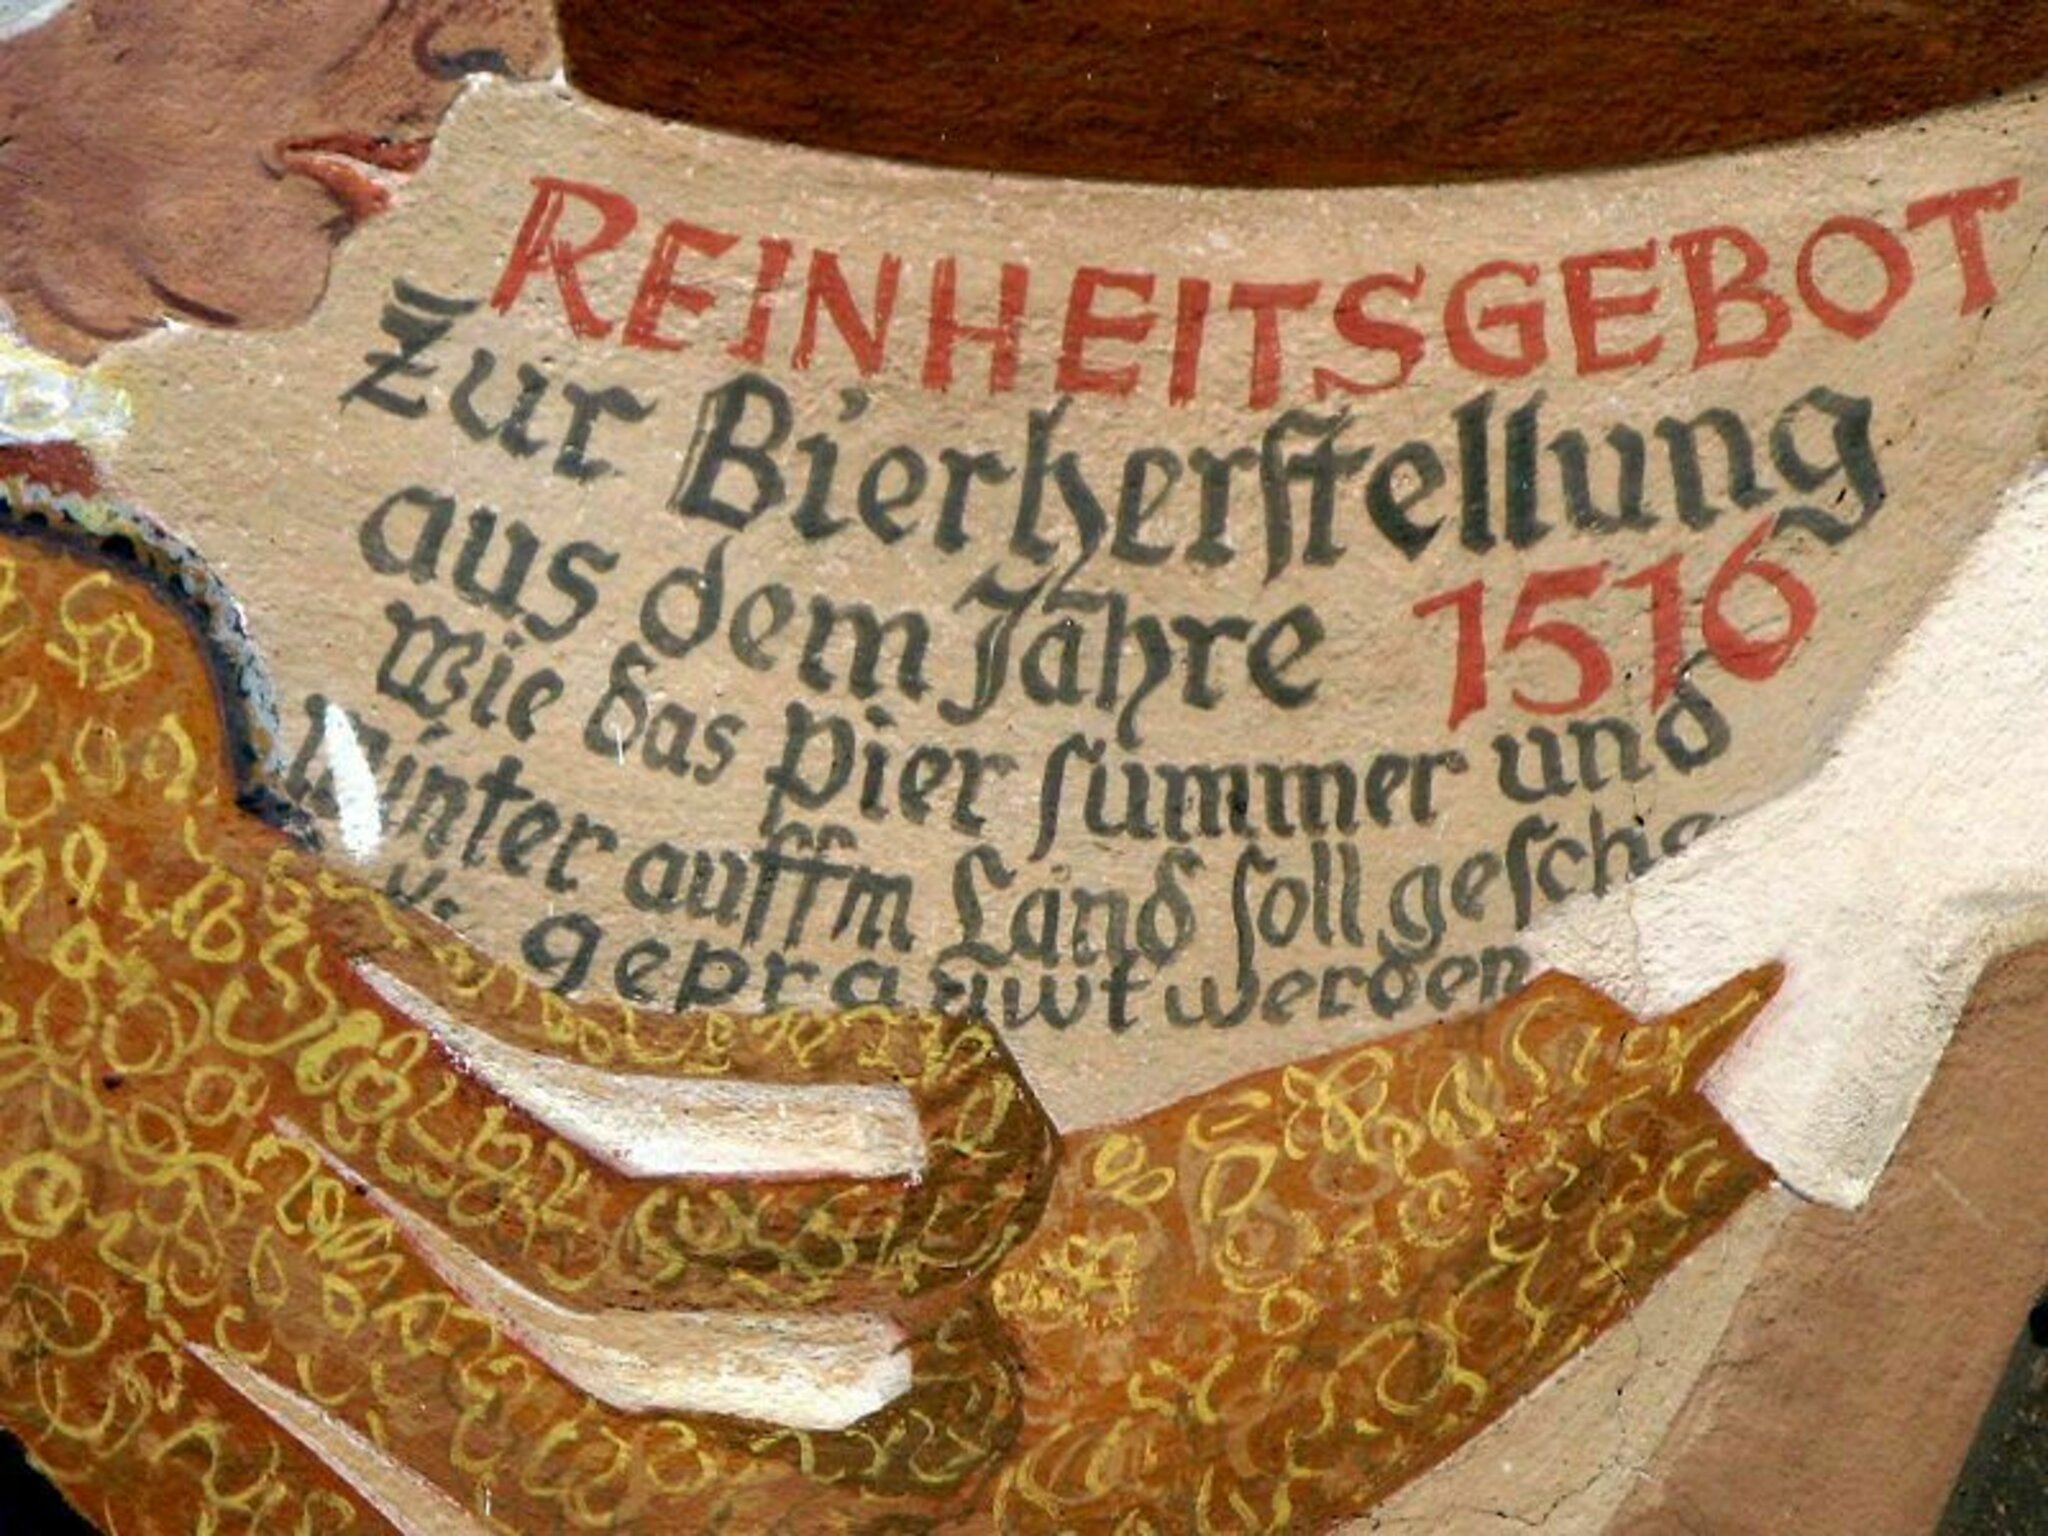 REINHEITSGEBOT
Zur Bierherstellung
aus dem Jahre 1516
Wie das Pier summer und
Winter auffm Land soll geschie
geprauwt werden